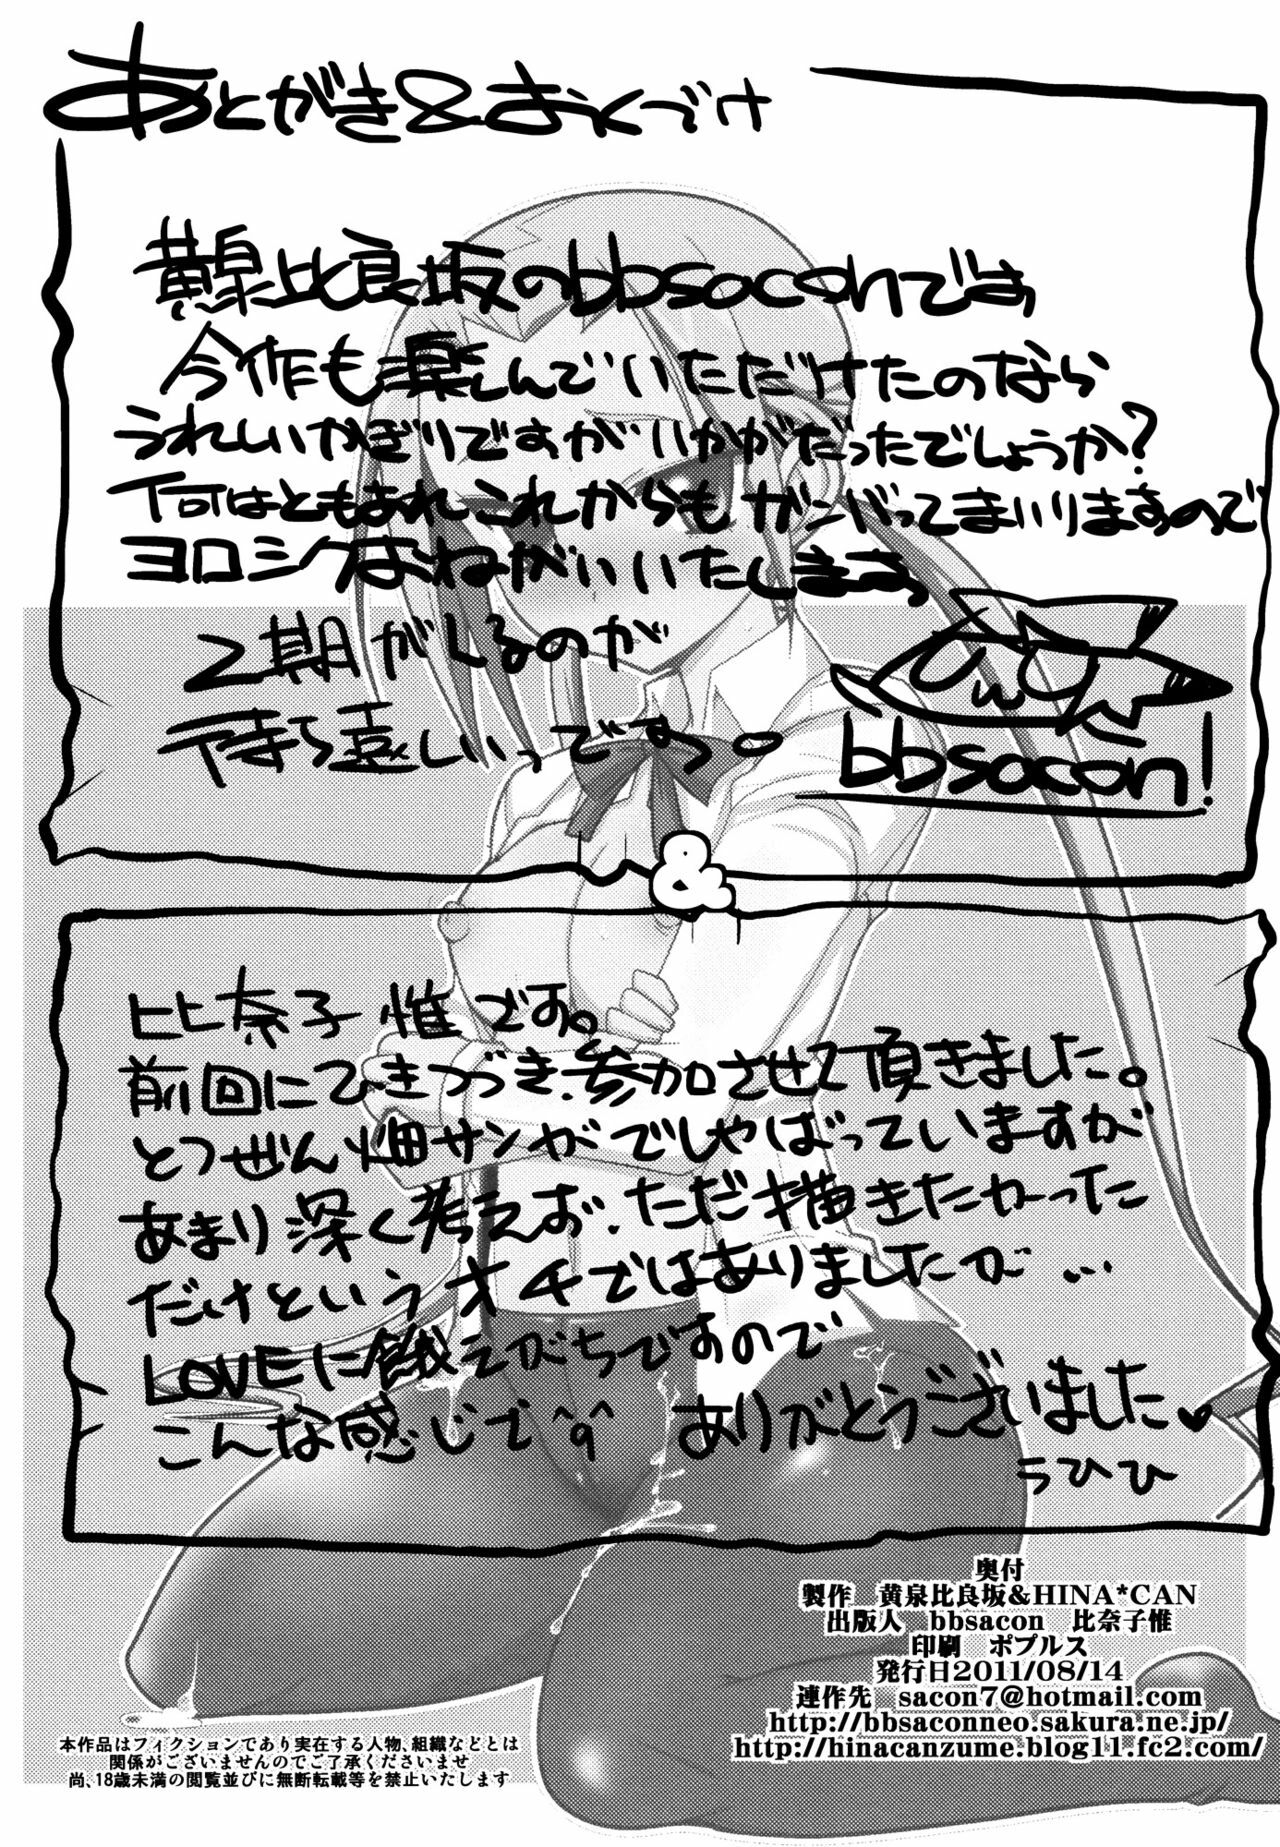 あとがき&おくづけ
黄泉比良坂のbbsaconです
今作も楽しんでいただけたのなら
うれしいかぎりですがいかがだったでしょうか?
下向はともあれこれからもガンバってまいりますので
ヨロシクおねがいいたします
2期がくるのが
待ち遠しいっです。
bbsacon!
&
比奈子 惟です。
前回にひきつづき、参加させて頂きました。
とつぜん畑サンがでしゃばっていますが
あまり深く考えず、ただ描きたかった
だけというオチではありましたが…
LOVEに餓えがちですので
こんな感じで^q^ ありがとうございました♥
うひひ
奥付
製作 黄泉比良坂&HINA*CAN
出版人 bbsacon 比奈子惟
印刷 ポプルス
発行日2011/08/14
連作先 sacon7@hotmail.com
http://bbsaconneo.sakura.ne.jp/
http://hinacanzume.blog11.fc2.com/
本作品はフィクションであり実在する人物、組織などとは
関係がございませんのでご了承くださいませ
尚、18歳未満の閲覧並びに無断転載等を禁止いたします